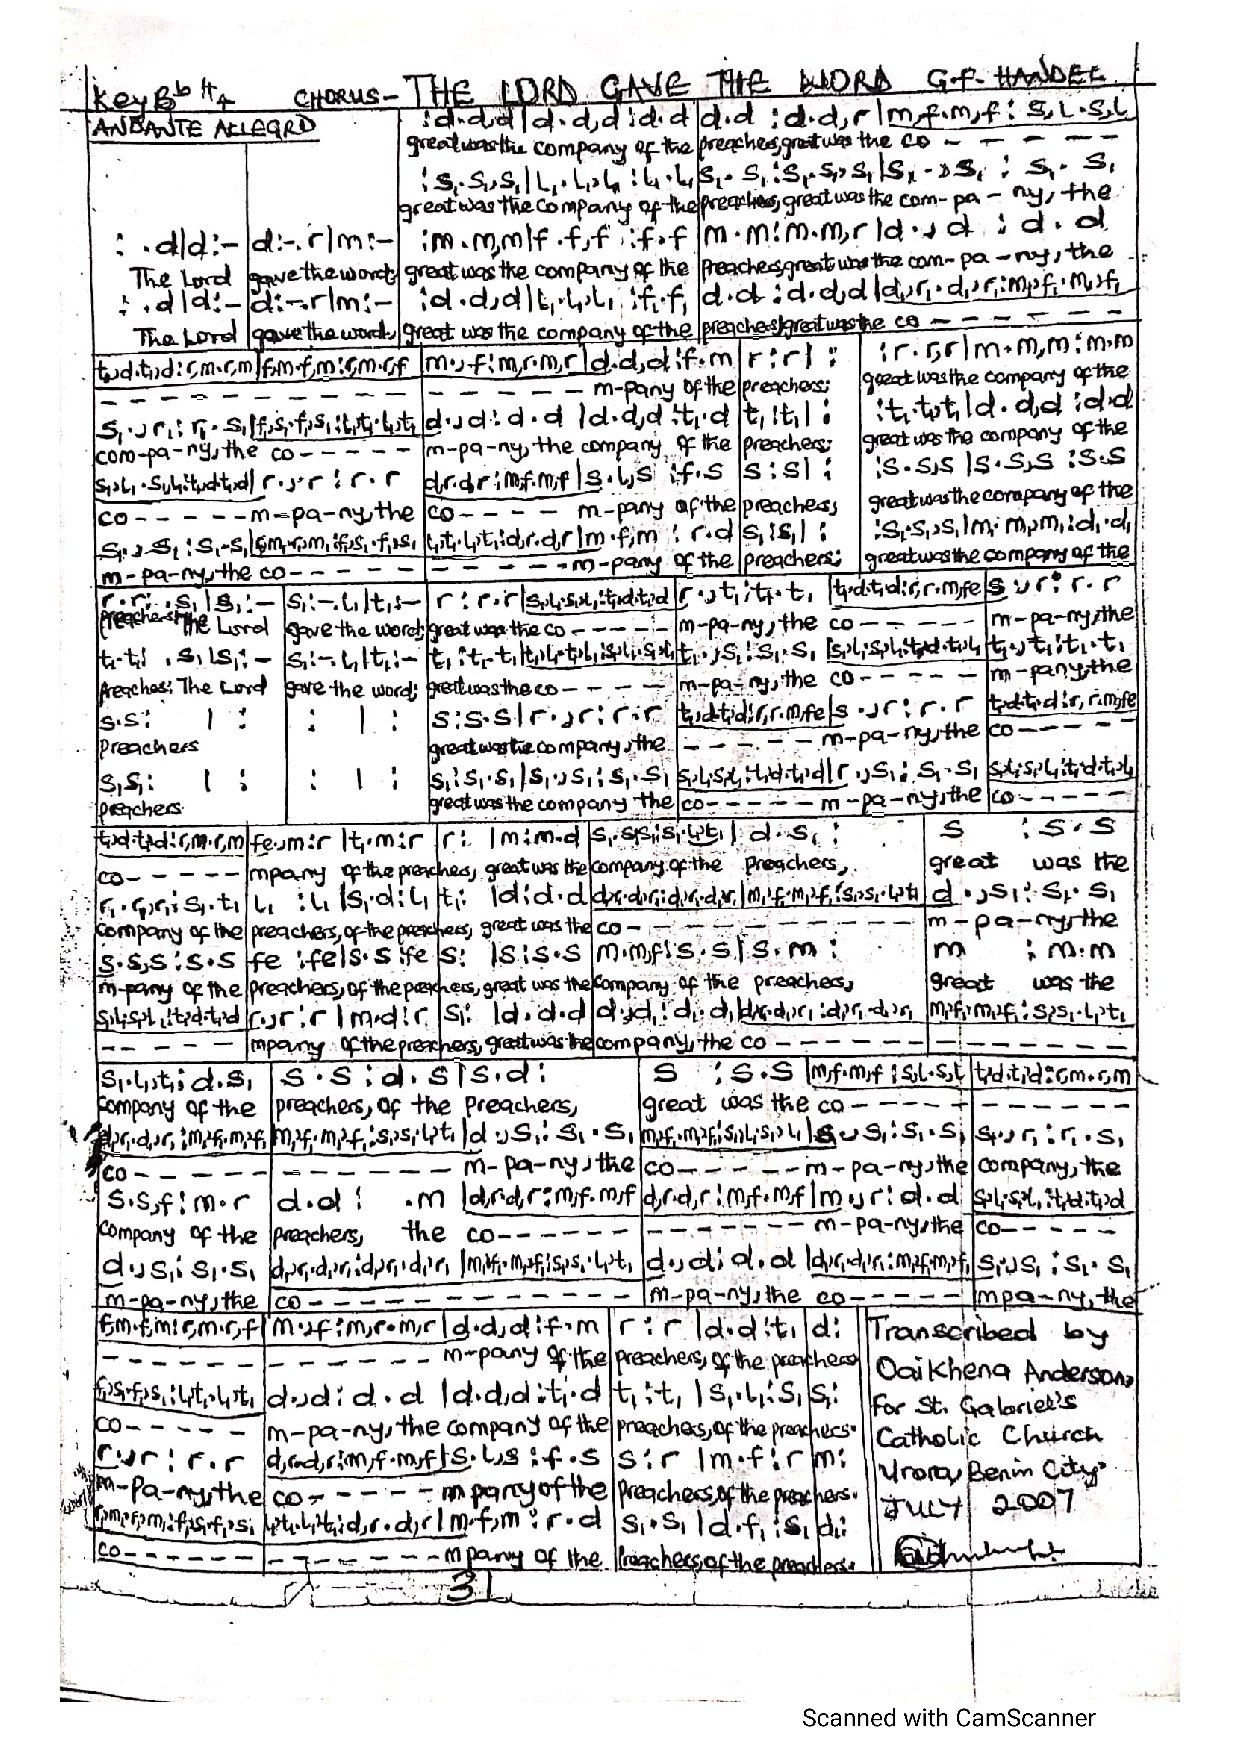 Key Bb H4 CHORUS- THE LORD GAVE THE WORD G.F. HANDEL
ANDANTE ALLEGRO
:d.d,d|d.d,d:d.d|d.d :d.d,r|m,f.m,f:s,l.s,l
great was the company of the preachers, great was the co - - - - -
:s₁.s₁,s₁|l₁.l₁,l₁:l₁.l₁|s₁.s₁:s₁.s₁,s₁|s₁.,s₁:s₁.s₁
great was the company of the preachers, great was the com-pa-ny, the
: .d|d:-|d:-.r|m:-|:m.m,m|f.f,f:f.f|m.m:m.m,r|d.,d:d.d
The Lord gave the word; great was the company of the preachers, great was the com-pa-ny, the
: .d|d:-|d:-.r|m:-|:d.d,d|l₁.l₁,l₁:f₁.f₁|d.d:d.d,d|d₁,r₁.d₁,r₁:m₁,f₁.m₁,f₁
The Lord gave the word, great was the company of the preachers, great was the co - - - - -
t₁,d.t₁,d:r,m.r,m|f,m.f,m:r,m.r,f|m.,f:m,r.m,r|d.d,d:f.m|r:r|:|:r.r,r|m.m,m:m.m
- - - - - m-pany of the preachers: great was the company of the
s₁.,r₁:r₁.s₁|f₁,s₁.f₁,s₁:l₁,t₁.l₁,t₁|d.,d:d.d|d.d,d:t₁.d|t₁:t₁|:|:t₁.t₁,t₁|d.d,d:d.d
com-pa-ny, the co - - - - - m-pa-ny, the company of the preachers; great was the company of the
s₁,l₁.s₁,l₁:t₁,d.t₁,d|r.,r:r.r|d,r.d,r:m,f.m,f|s.l,s:f.s|s:s|:|:s.s,s|s.s,s:s.s
co - - - - - m-pa-ny, the co - - - - m-pany of the preachers; great was the company of the
s₁.,s₁:s₁.s₁|m:r.d|s₁|s₁|:|:s₁.s₁,s₁|m₁.m₁,m₁:d₁.d₁
m-pa-ny, the co - - - - - m-pany of the preachers: great was the company of the
r.r: .s₁|s₁:-|s₁:-.l₁|t₁:-|r:r.r|s₁,l₁.s₁,l₁:t₁,d.t₁,d|r.,t₁:t₁.t₁|t₁,d.t₁,d:r,r.m,fe|s.,r:r.r
preachers: The Lord gave the word; great was the co - - - - - m-pa-ny, the co - - - - - m-pa-ny, the
t₁.t₁: .s₁|s₁:-|s₁:-.l₁|t₁:-|t₁:t₁.t₁|t₁.,s₁:s₁.s₁|t₁.,t₁:t₁.t₁
Preaches: The Lord gave the word; great was the co - - - - m-pa-ny, the co - - - - - m-pany, the
s.s: | : : | : s:s.s|r.,r:r.r|t₁,d.t₁,d:r,r.m,fe|s.,r:r.r|t₁,d.t₁,d:r,r.m,fe
preachers great was the company, the - - - - - m-pa-ny, the co - - - -
s₁.s₁: | : : | : s₁:s₁.s₁|s₁.,s₁:s₁.s₁|s₁,l₁.s₁,l₁:t₁,d.t₁,d|r.,s₁:s₁.s₁|s₁,l₁.s₁,l₁:t₁,d.t₁,l₁
preachers great was the company the co - - - - - m-pa-ny, the co - - - - -
t₁,d.t₁,d:r,m.r,m|fe.,m:r|t₁.m:r|r: |m:m.d|s₁.s₁,s₁:s₁.l₁,t₁|d.s₁:|s :s.s
co - - - - - mpany of the preachers, great was the company, of the preachers, great was the
r₁.r₁,r₁:s₁.t₁|l₁:l₁|s₁.d:l₁|t₁: |d:d.d|d₁,r₁.d₁,r₁:d₁,r₁.d₁,r₁|m₁,f₁.m₁,f₁:s₁,s₁.l₁,t₁|d.,s₁:s₁.s₁
company of the preachers, of the preachers, great was the co - - - - - m-pa-ny, the
s.s,s:s.s|fe:fe|s.s:fe|s: |s:s.s|m.m,f:s.s|s.m:|m :m.m
m-pany of the preachers, of the preachers, great was the company of the preachers, great was the
s₁,l₁.s₁,l₁:t₁,d.t₁,d|r.,r:r|m.d:r|s₁: |d:d.d|d.,d₁:d₁.d₁|d₁,r₁.d₁,r₁:d₁,r₁.d₁,r₁|m₁,f₁.m₁,f₁:s₁,s₁.l₁,t₁
- - - - - mpany of the preachers, great was the company, the co - - - - - - -
s₁.l₁,t₁:d.s₁|s.s:d.s|s.d:|s :s.s|m,f.m,f:s,l.s,l|t₁,d.t₁,d:r,m.r,m
company of the preachers, of the Preachers, great was the co - - - - - - - - -
d₁,r₁.d₁,r₁:m₁,f₁.m₁,f₁|m₁,f₁.m₁,f₁:s₁,s₁.l₁,t₁|d.,s₁:s₁.s₁|m₁,f₁.m₁,f₁:s₁,l₁.s₁,l₁|s₁.,s₁:s₁.s₁|s₁.,r₁:r₁.s₁
co - - - - - - - - - m-pa-ny, the co - - - - - m-pa-ny, the company, the
s.s,f:m.r|d.d: .m|d,r.d,r:m,f.m,f|d,r.d,r:m,f.m,f|m.,r:d.d|s₁,l₁.s₁,l₁:t₁,d.t₁,d
company of the preachers, the co - - - - - - - - - - m-pa-ny, the co - - - - -
d.,s₁:s₁.s₁|d₁,r₁.d₁,r₁:d₁,r₁.d₁,r₁|m₁,f₁.m₁,f₁:s₁,s₁.l₁,t₁|d.,d:d.d|d₁,r₁.d₁,r₁:m₁,f₁.m₁,f₁|s₁.,s₁:s₁.s₁
m-pa-ny, the co - - - - - - - - - - - m-pa-ny, the co - - - - - mpa-ny, the
f,m.f,m:r,m.r,f|m.,f:m,r.m,r|d.d,d:f.m|r:r|d.d:t₁|d:
- - - - - - - - - - - m-pany of the preachers, of the preachers
f₁,s₁.f₁,s₁:l₁,t₁.l₁,t₁|d.,d:d.d|d.d,d:t₁.d|t₁:t₁|s₁.l₁:s₁|s₁:
co - - - - - m-pa-ny, the company of the preachers, of the preachers.
r.,r:r.r|d,r.d,r:m,f.m,f|s.l,s:f.s|s:r|m.f:r|m:
m-Pa-ny, the co - - - - - mpany of the preachers, of the preachers.
l₁,t₁.l₁,t₁:d,r.d,r|m.f,m:r.d|s₁.s₁|d.f₁:s₁|d:
co - - - - - - - - - - - mpany of the Preachers, of the preachers.
Transcribed by
Oaikhena Anderson,
for St. Gabriel's
Catholic Church
Urora, Benin City
JULY 2007
31
Scanned with CamScanner